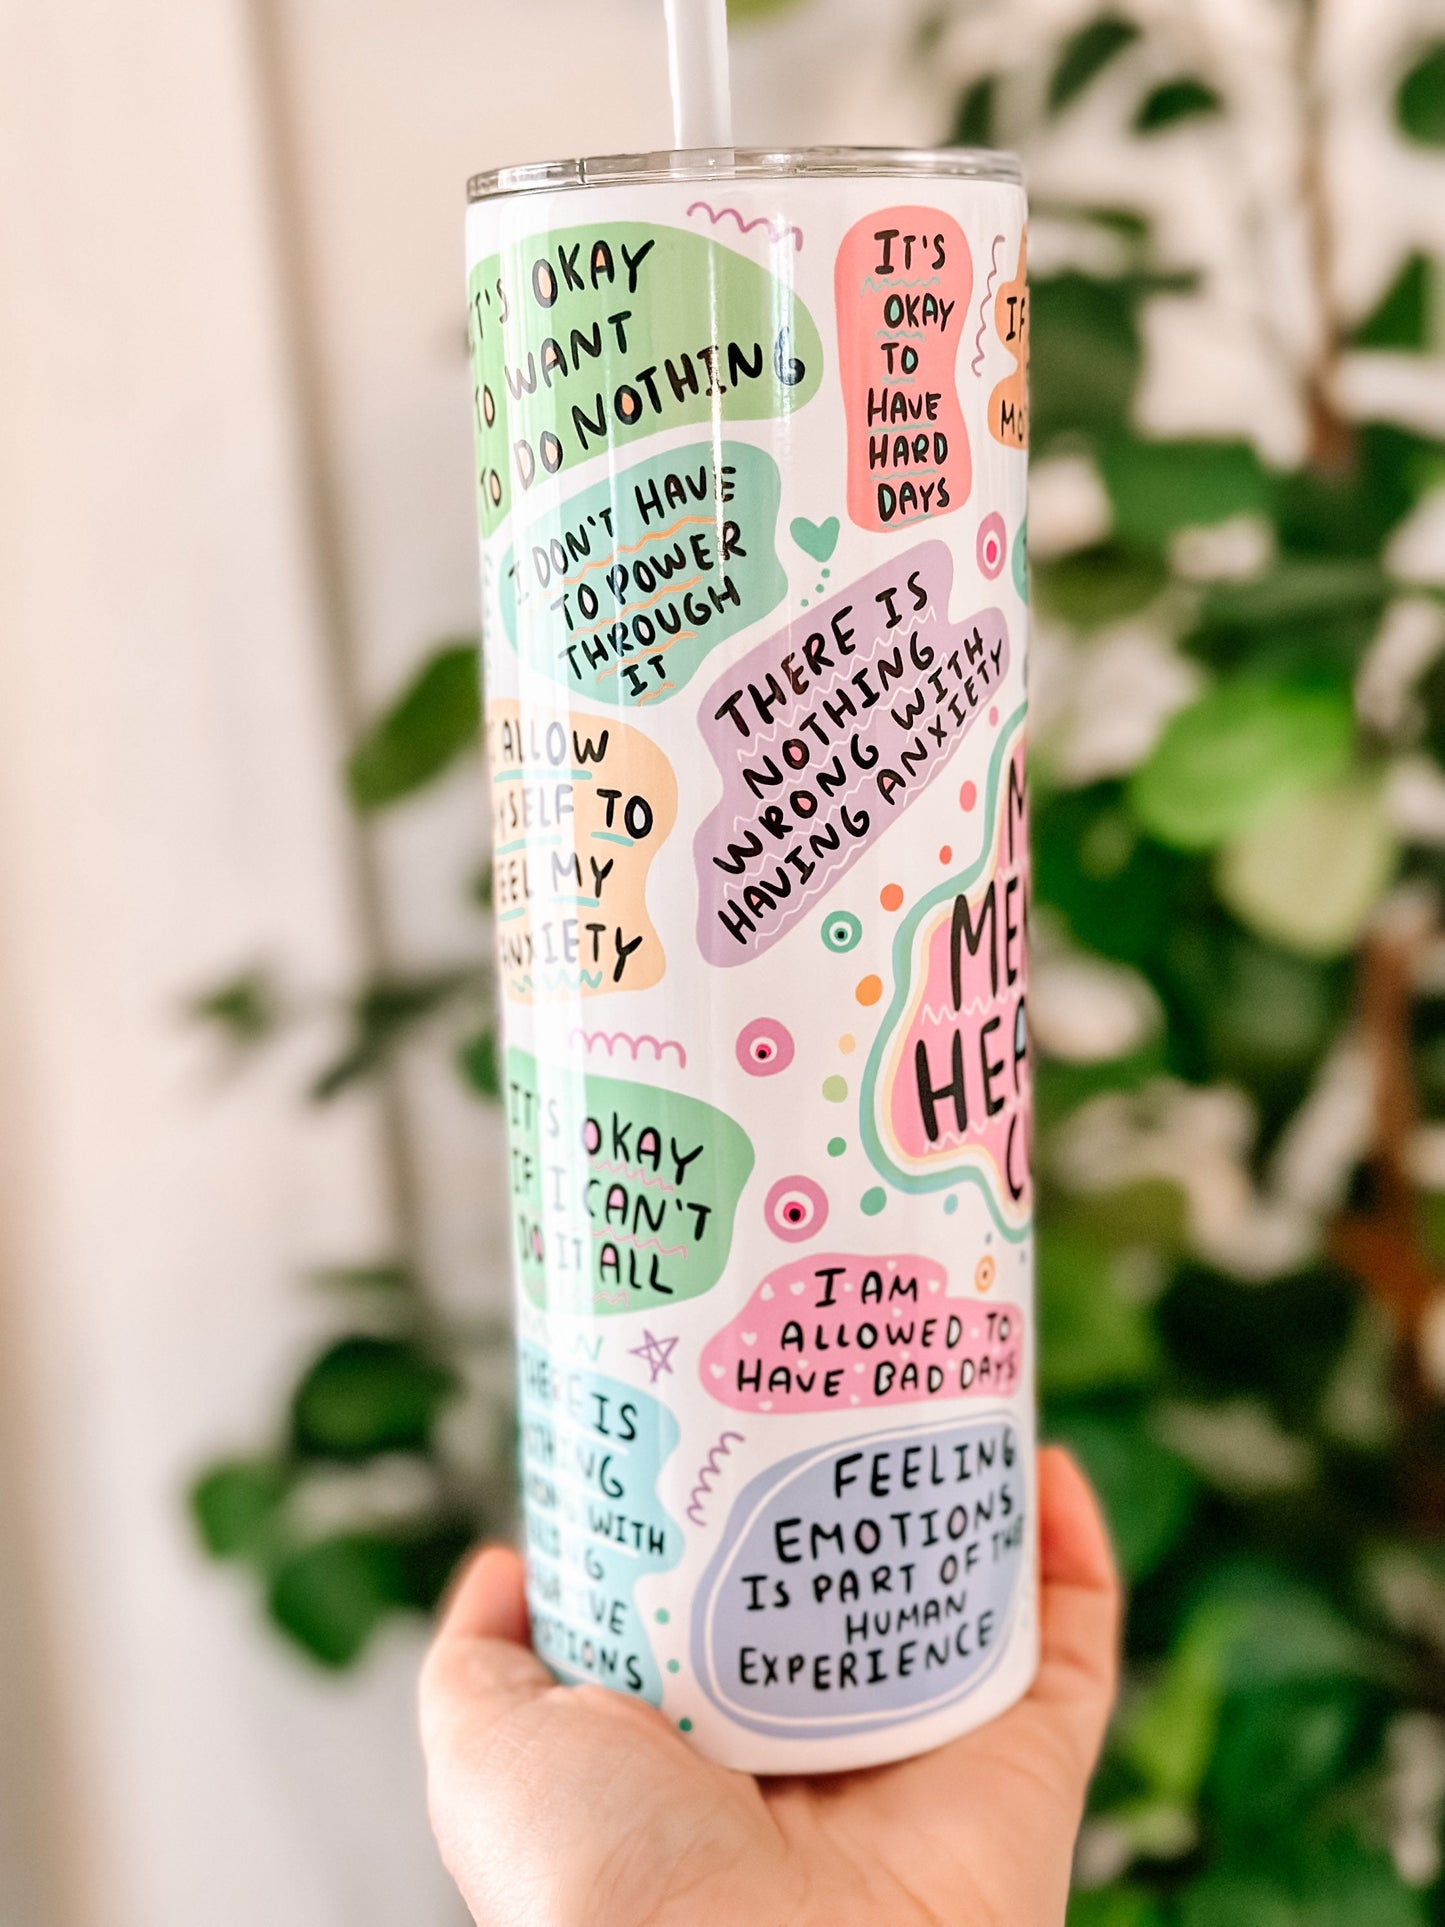 IT'S OKAY
TO WANT
TO DO NOTHING
IT'S
OKAY
TO
HAVE
HARD
DAYS
IF
I DON'T HAVE
TO POWER
THROUGH
IT
THERE IS
NOTHING
WRONG WITH
HAVING ANXIETY
I ALLOW
MYSELF TO
FEEL MY
ANXIETY
IT'S OKAY
IF I CAN'T
DO IT ALL
I AM
ALLOWED TO
HAVE BAD DAYS
THERE IS
NOTHING
WRONG WITH
FEELING
NEGATIVE
EMOTIONS
FEELING
EMOTIONS
IS PART OF THE
HUMAN
EXPERIENCE